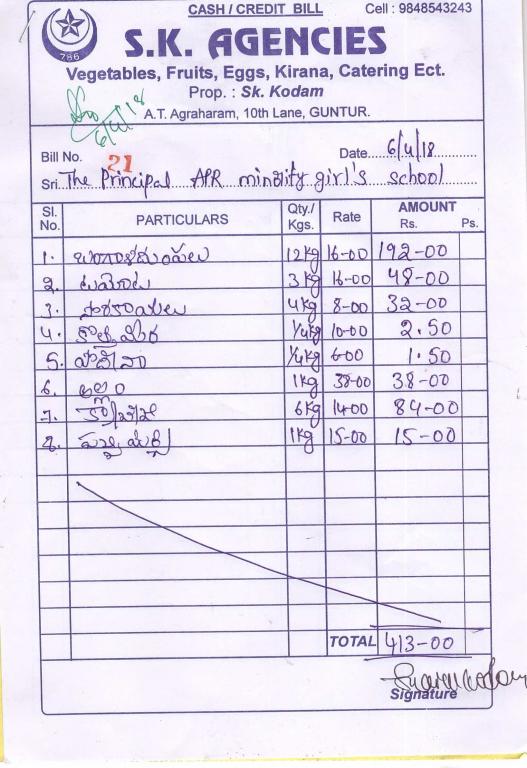 CASH / CREDIT BILL Cell : 9848543243
786
S.K. AGENCIES
Vegetables, Fruits, Eggs, Kirana, Catering Ect.
Prop. : Sk. Kodam
6/4/18
A.T. Agraharam, 10th Lane, GUNTUR.
Bill No. 21 Date 6/4/18
Sri. The Principal APR minority girl's school
Sl. No. PARTICULARS Qty./ Kgs. Rate AMOUNT Rs. Ps.
1. బంగాళదుంపలు 12kg 16-00 192-00
2. టమోటా 3kg 16-00 48-00
3. సొరకాయలు 4kg 8-00 32-00
4. కొత్తిమీర 1/4kg 10-00 2.50
5. పొదీనా 1/4kg 6-00 1.50
6. అల్లం 1kg 38-00 38-00
7. క్యాబేజి 6kg 14-00 84-00
8. పచ్చిమిర్చి 1kg 15-00 15-00
TOTAL 413-00
Signature